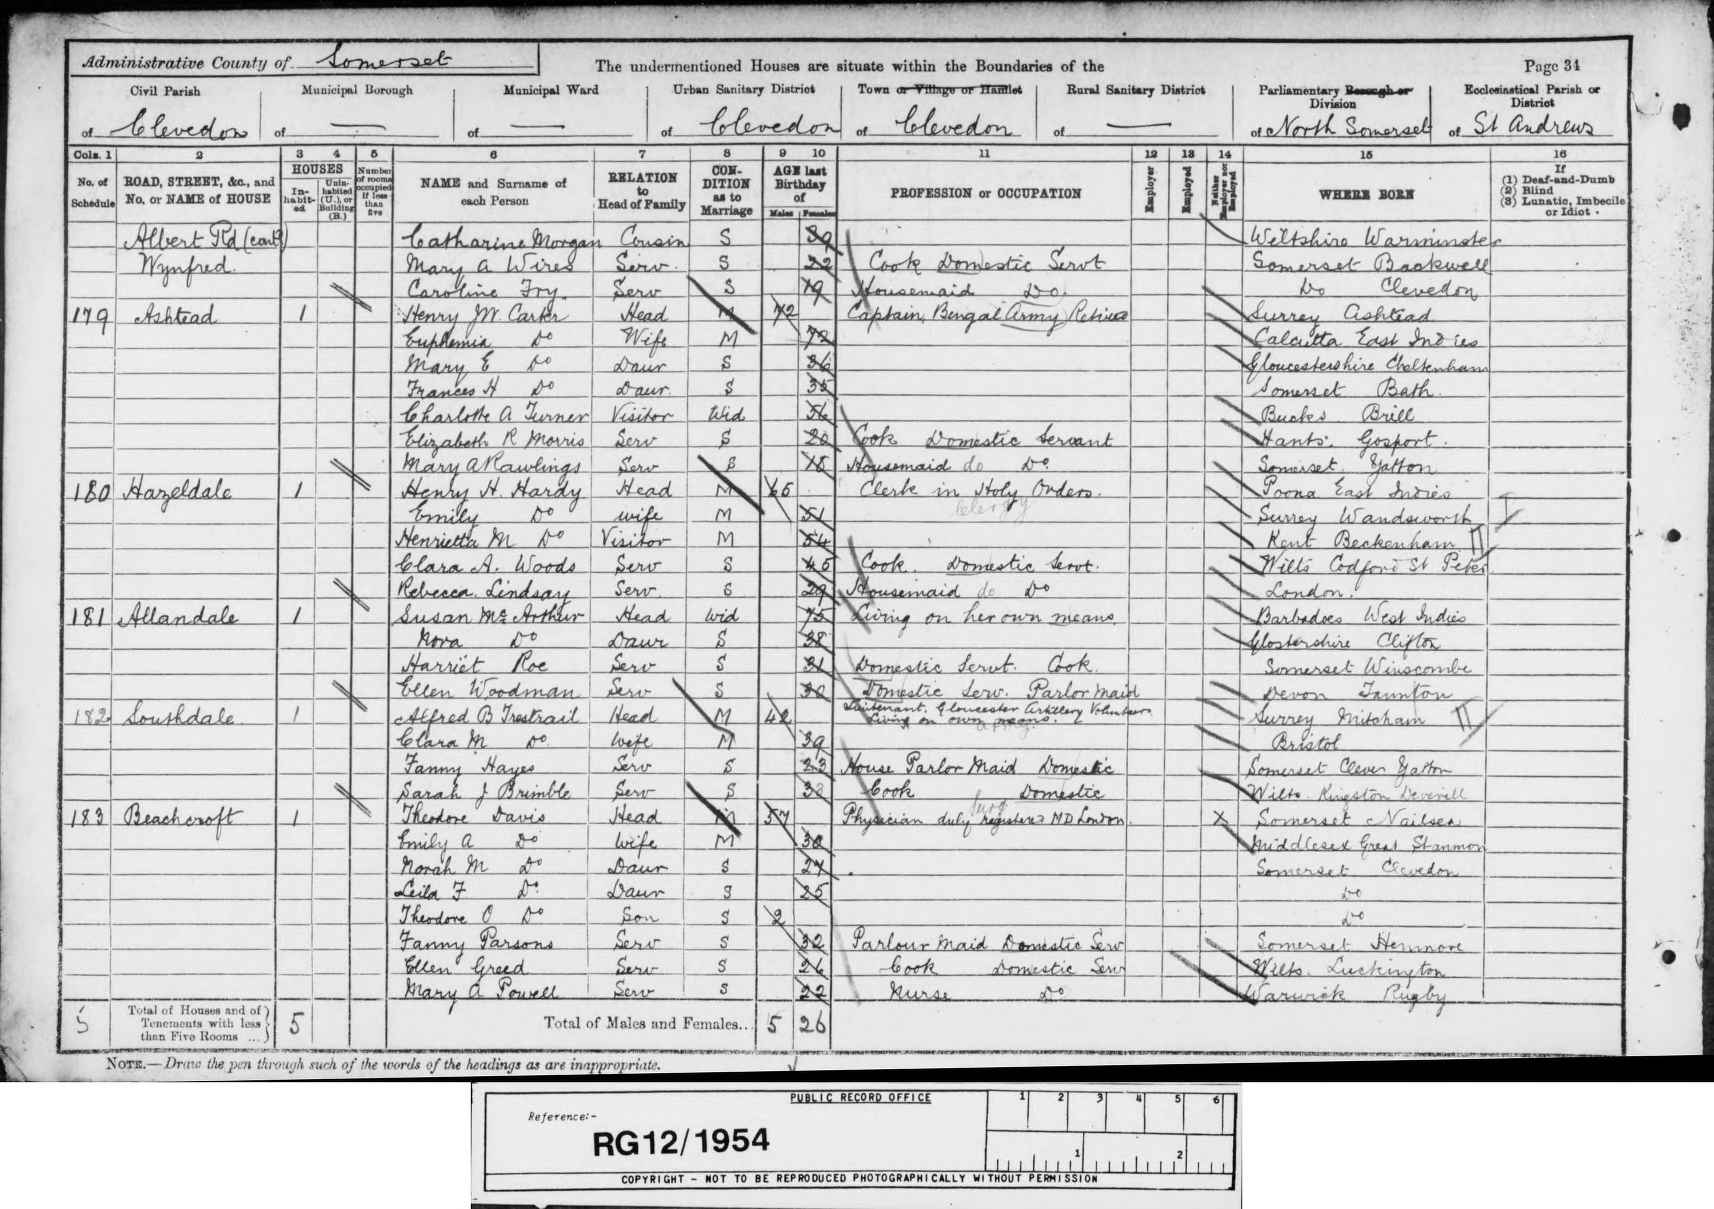 Administrative County of Somerset The undermentioned Houses are situate within the Boundaries of the Page 34
Civil Parish Municipal Borough Municipal Ward Urban Sanitary District Town or Village or Hamlet Rural Sanitary District Parliamentary Borough or Division Ecclesiastical Parish or District
of Clevedon of — of — of Clevedon of Clevedon of — of North Somerset of St Andrews
Cols. 1 2 3 4 5 6 7 8 9 10 11 12 13 14 15 16
No. of Schedule ROAD, STREET, &c., and No. or NAME of HOUSE HOUSES Inhabited Uninhabited (U.), or Building (B.) Number of rooms occupied if less than five NAME and Surname of each Person RELATION to Head of Family CONDITION as to Marriage AGE last Birthday of Males Females PROFESSION or OCCUPATION Employer Employed Neither Employer nor Employed WHERE BORN If (1) Deaf-and-Dumb (2) Blind (3) Lunatic, Imbecile or Idiot
Albert Rd (cont) Catharine Morgan Cousin S 39 Wiltshire Warminster
Wynfred. Mary A Wires Serv. S 22 Cook Domestic Servt Somerset Backwell
Caroline Fry Serv S 19 Housemaid Do Do Clevedon
179 Ashtead 1 Henry W Carter Head M 72 Captain Bengal Army Retired Surrey Ashtead
Euphemia Do Wife M 72 Calcutta East Indies
Mary E Do Daur S 36 Gloucestershire Cheltenham
Frances H Do Daur. S 35 Somerset Bath.
Charlotte A Turner Visitor Wid 56 Bucks Brill
Elizabeth R Morris Serv S 20 Cook Domestic Servant Hants. Gosport.
Mary A Rawlings Serv S 18 Housemaid do Do Somerset. Yatton
180 Hazeldale 1 Henry H. Hardy Head M 65 Clerk in Holy Orders. Poona East Indies
Clergy
Emily Do wife M 51 Surrey Wandsworth
Henrietta M Do Visitor M 54 Kent Beckenham
Clara A. Woods Serv S 45 Cook. Domestic Servt. Wilts Codford St Peter
Rebecca Lindsay Serv. S 29 Housemaid do Do London.
181 Allandale 1 Susan Mc Arthur Head Wid 75 Living on her own means. Barbadoes West Indies
Nora Do Daur S 38 Glostershire Clifton
Harriet Roe Serv S 31 Domestic Servt. Cook. Somerset Winscombe
Ellen Woodman Serv S 30 Domestic Serv. Parlor Maid Devon Taunton
182 Southdale 1 Alfred B Trestrail Head M 42 Lieutenant. Gloucester Artillery Volunteers Living on own means. Surrey Mitcham
Clara M Do. wife M 39 Bristol
Fanny Hayes Serv S 23 House Parlor Maid Domestic Somerset Yatton
Sarah J Brimble Serv S 38 Cook Domestic Wilts. Kingston Deverill
183 Beachcroft 1 Theodore Davis Head M 57 Physician duly registered MD London. X Somerset Nailsea
Emily A Do wife M 30 Middlesex Great Stanmore
Norah M Do Daur S 27 Somerset Clevedon
Leila F Do. Daur S 25 Do
Theodore O Do Son S 2 Do
Fanny Parsons Serv S 32 Parlour Maid Domestic Serv Somerset
Ellen Greed Serv S 26 Cook Domestic Serv Wilts. Luckington
Mary A Powell Serv S 22 Nurse Do Warwick Rugby
5 Total of Houses and of Tenements with less than Five Rooms ... 5 Total of Males and Females... 5 26
NOTE.—Draw the pen through such of the words of the headings as are inappropriate.
PUBLIC RECORD OFFICE 1 2 3 4 5 6
Reference:-
RG12/1954 1 2
COPYRIGHT - NOT TO BE REPRODUCED PHOTOGRAPHICALLY WITHOUT PERMISSION